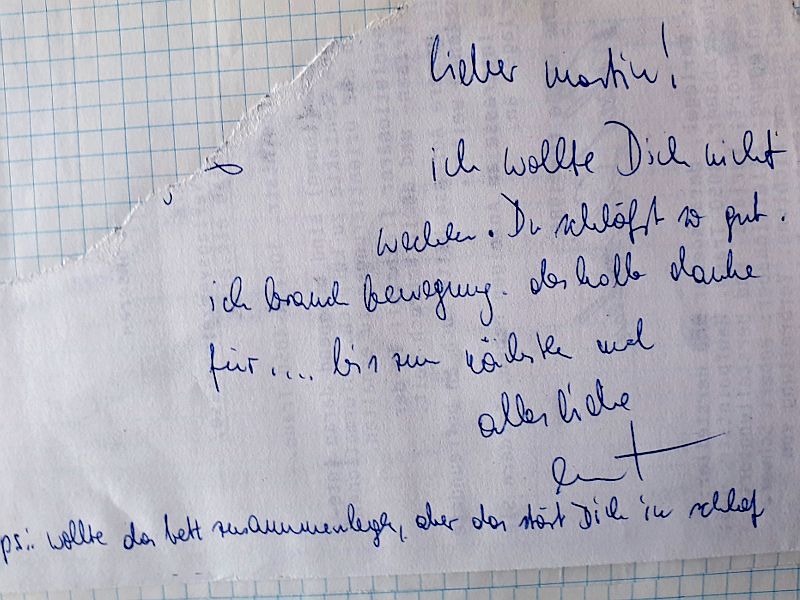 lieber martin!
ich wollte Dich nicht
wecken. Du schläfst so gut.
ich brauch bewegung. deshalb danke
für.... bis zum nächsten mal
alles liebe
ps.: wollte das bett zusammenlegen, aber das stört Dich im schlaf